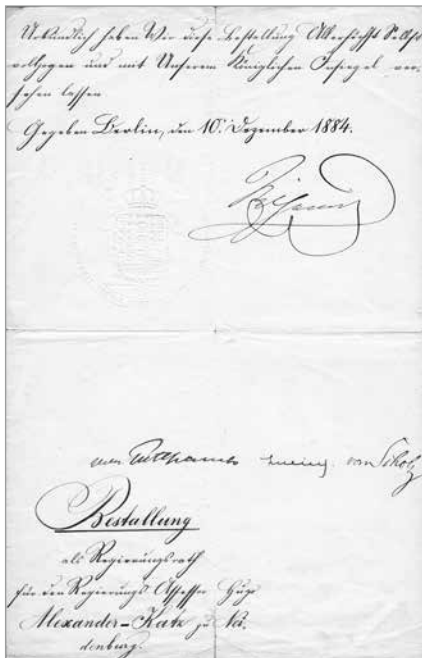 Urkundlich haben Wir diese Bestallung Allerhöchst Selbst
vollzogen und mit Unserem Königlichen Insiegel ver-
sehen lassen
Gegeben Berlin, den 10. Dezember 1884.
von Puttkamer von Scholz
Bestallung
als Regierungsrath
für den Regierungs Assessor Hugo
Alexander-Katz zu Nei-
denburg.